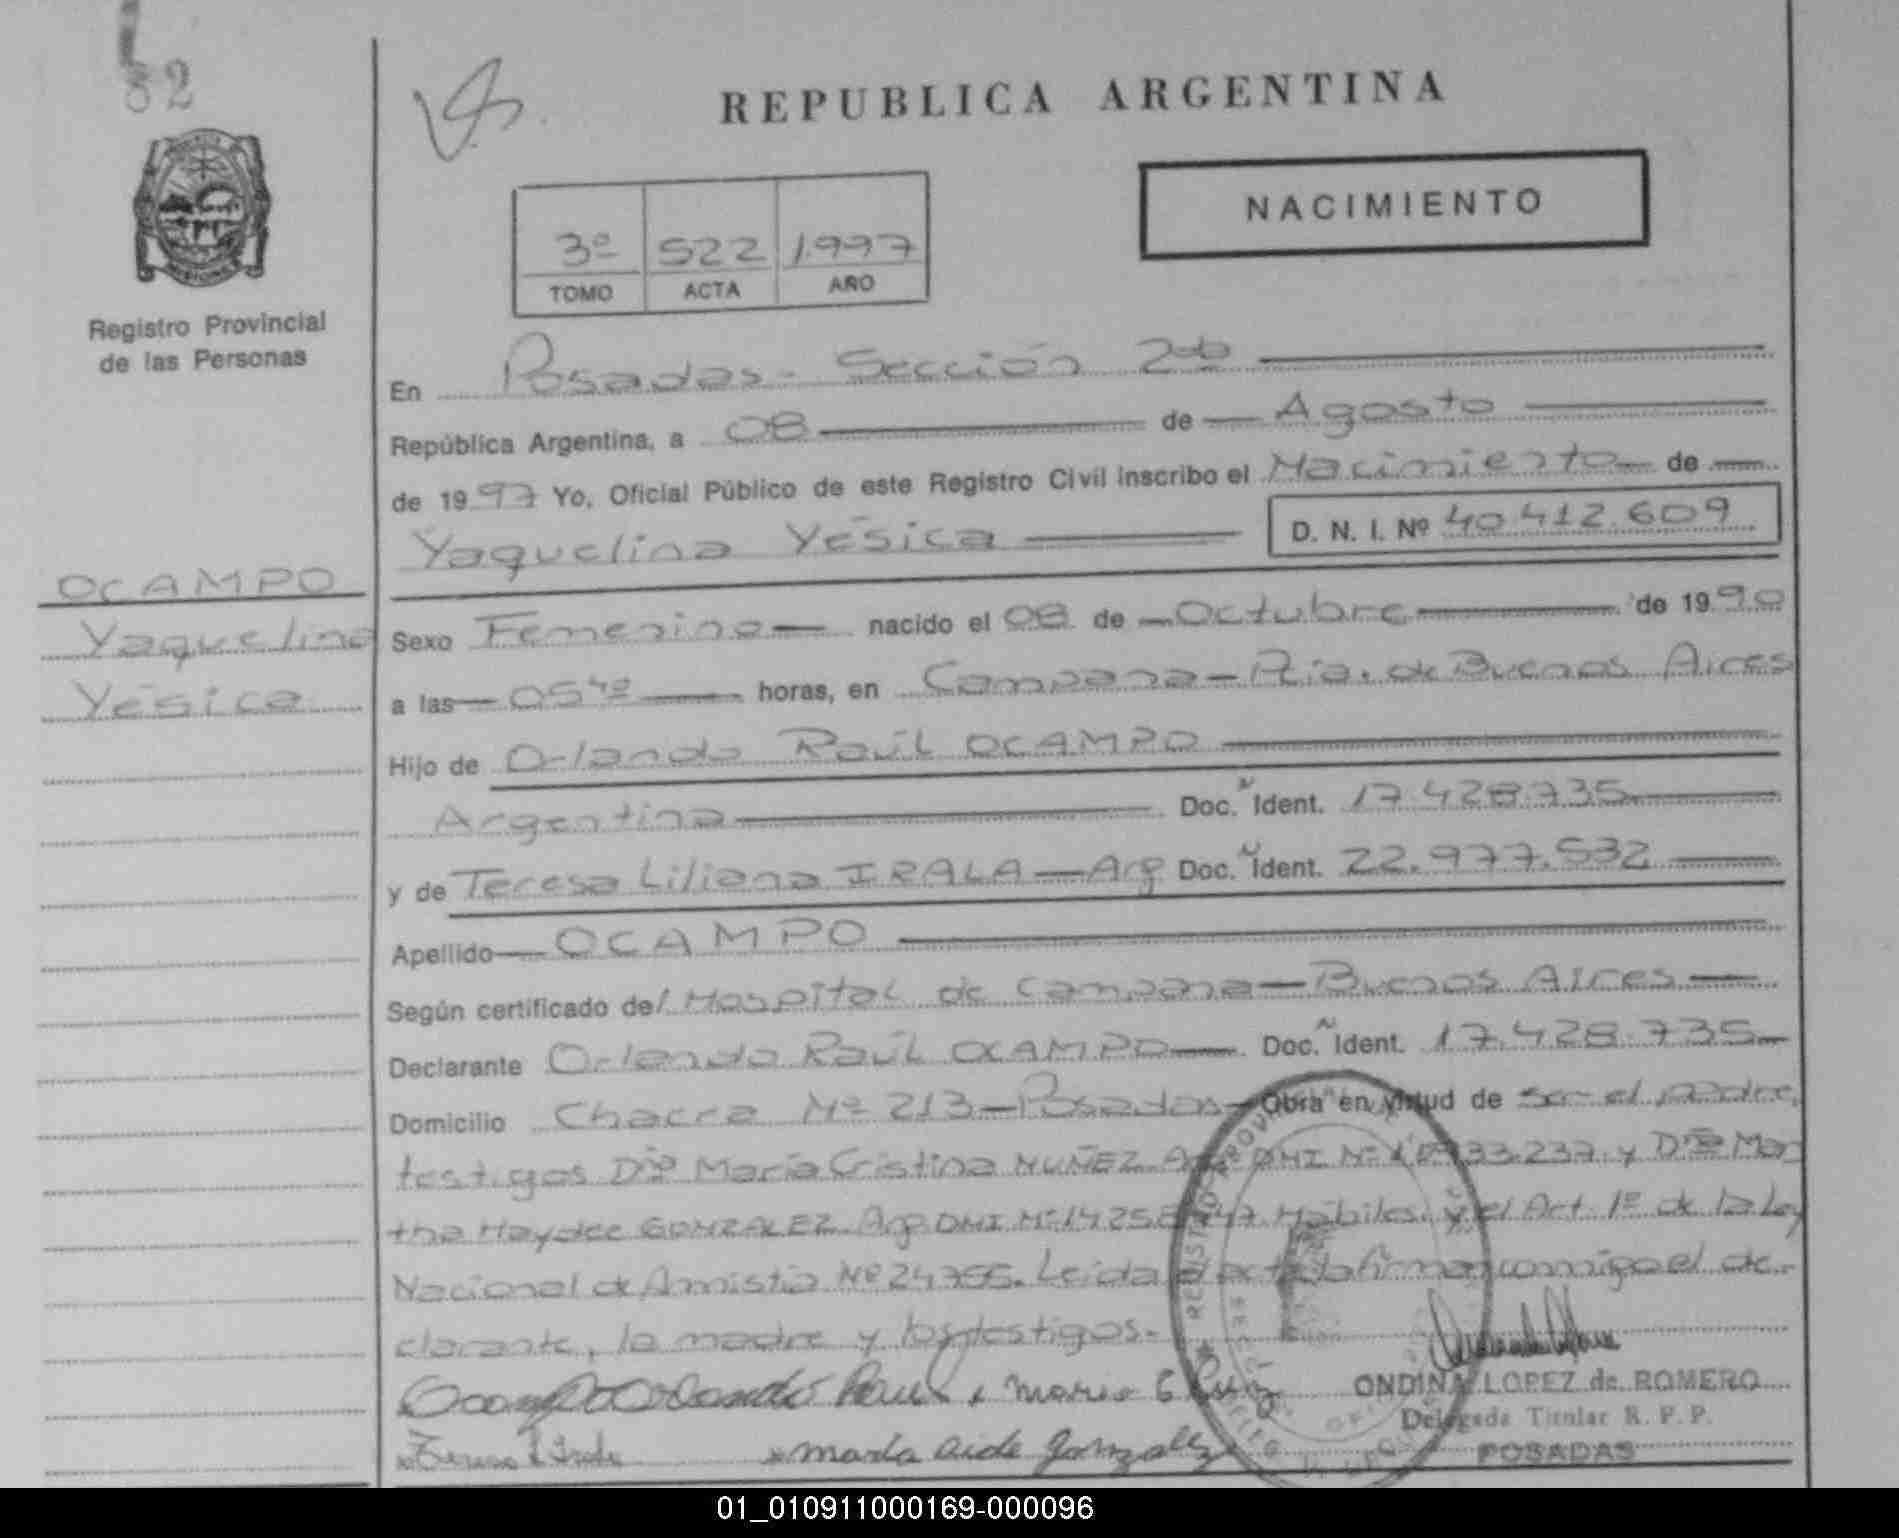 82
REPUBLICA ARGENTINA
NACIMIENTO
3º 522 1.997
TOMO ACTA AÑO
Registro Provincial
de las Personas
En Posadas - Sección 2da
República Argentina, a 08 de Agosto
de 1997 Yo, Oficial Público de este Registro Civil inscribo el Nacimiento de
Yaquelina Yésica D. N. I. Nº 40.412.609
OCAMPO
Yaquelina
Yésica
Sexo Femenino nacido el 08 de Octubre de 1990
a las 05⁴⁰ horas, en Campana - Pcia. de Buenos Aires
Hijo de Orlando Raúl OCAMPO
Argentina Doc. Ident. 17.428.735
y de Teresa Liliana IRALA — Arg Doc. Ident. 22.977.532
Apellido OCAMPO
Según certificado del Hospital de Campana — Buenos Aires
Declarante Orlando Raúl OCAMPO Doc. Ident. 17.428.735
Domicilio Chacra Nº 213 - Posadas Obra en virtud de ser el padre,
testigos Dña María Cristina NUÑEZ Arg DNI Nº 33.237 y Dña Mar
tha Haydee GONZALEZ Arg. DNI Nº 14.258. Hábiles. y el Art. 1º de la Ley
Nacional de Amnistía Nº 24.755. Leida el acta la firman conmigo el de-
clarante, la madre y los testigos.
Ocampo Orlando Raul
ONDINA LOPEZ de ROMERO
Delegada Titular R. P. P.
marta aide gonzalez
POSADAS
01_010911000169-000096